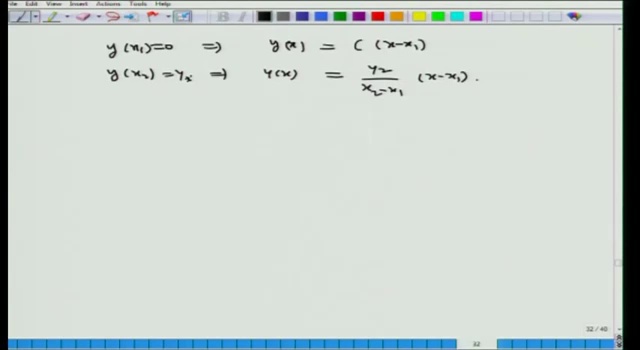 File Edit View Insert Actions Tools Help
y(x₁)=0 ⇒ y(x) = C (x-x₁)
y(x₂) = y₂ ⇒ y(x) = y₂/(x₂-x₁) (x-x₁).
32 / 40
32